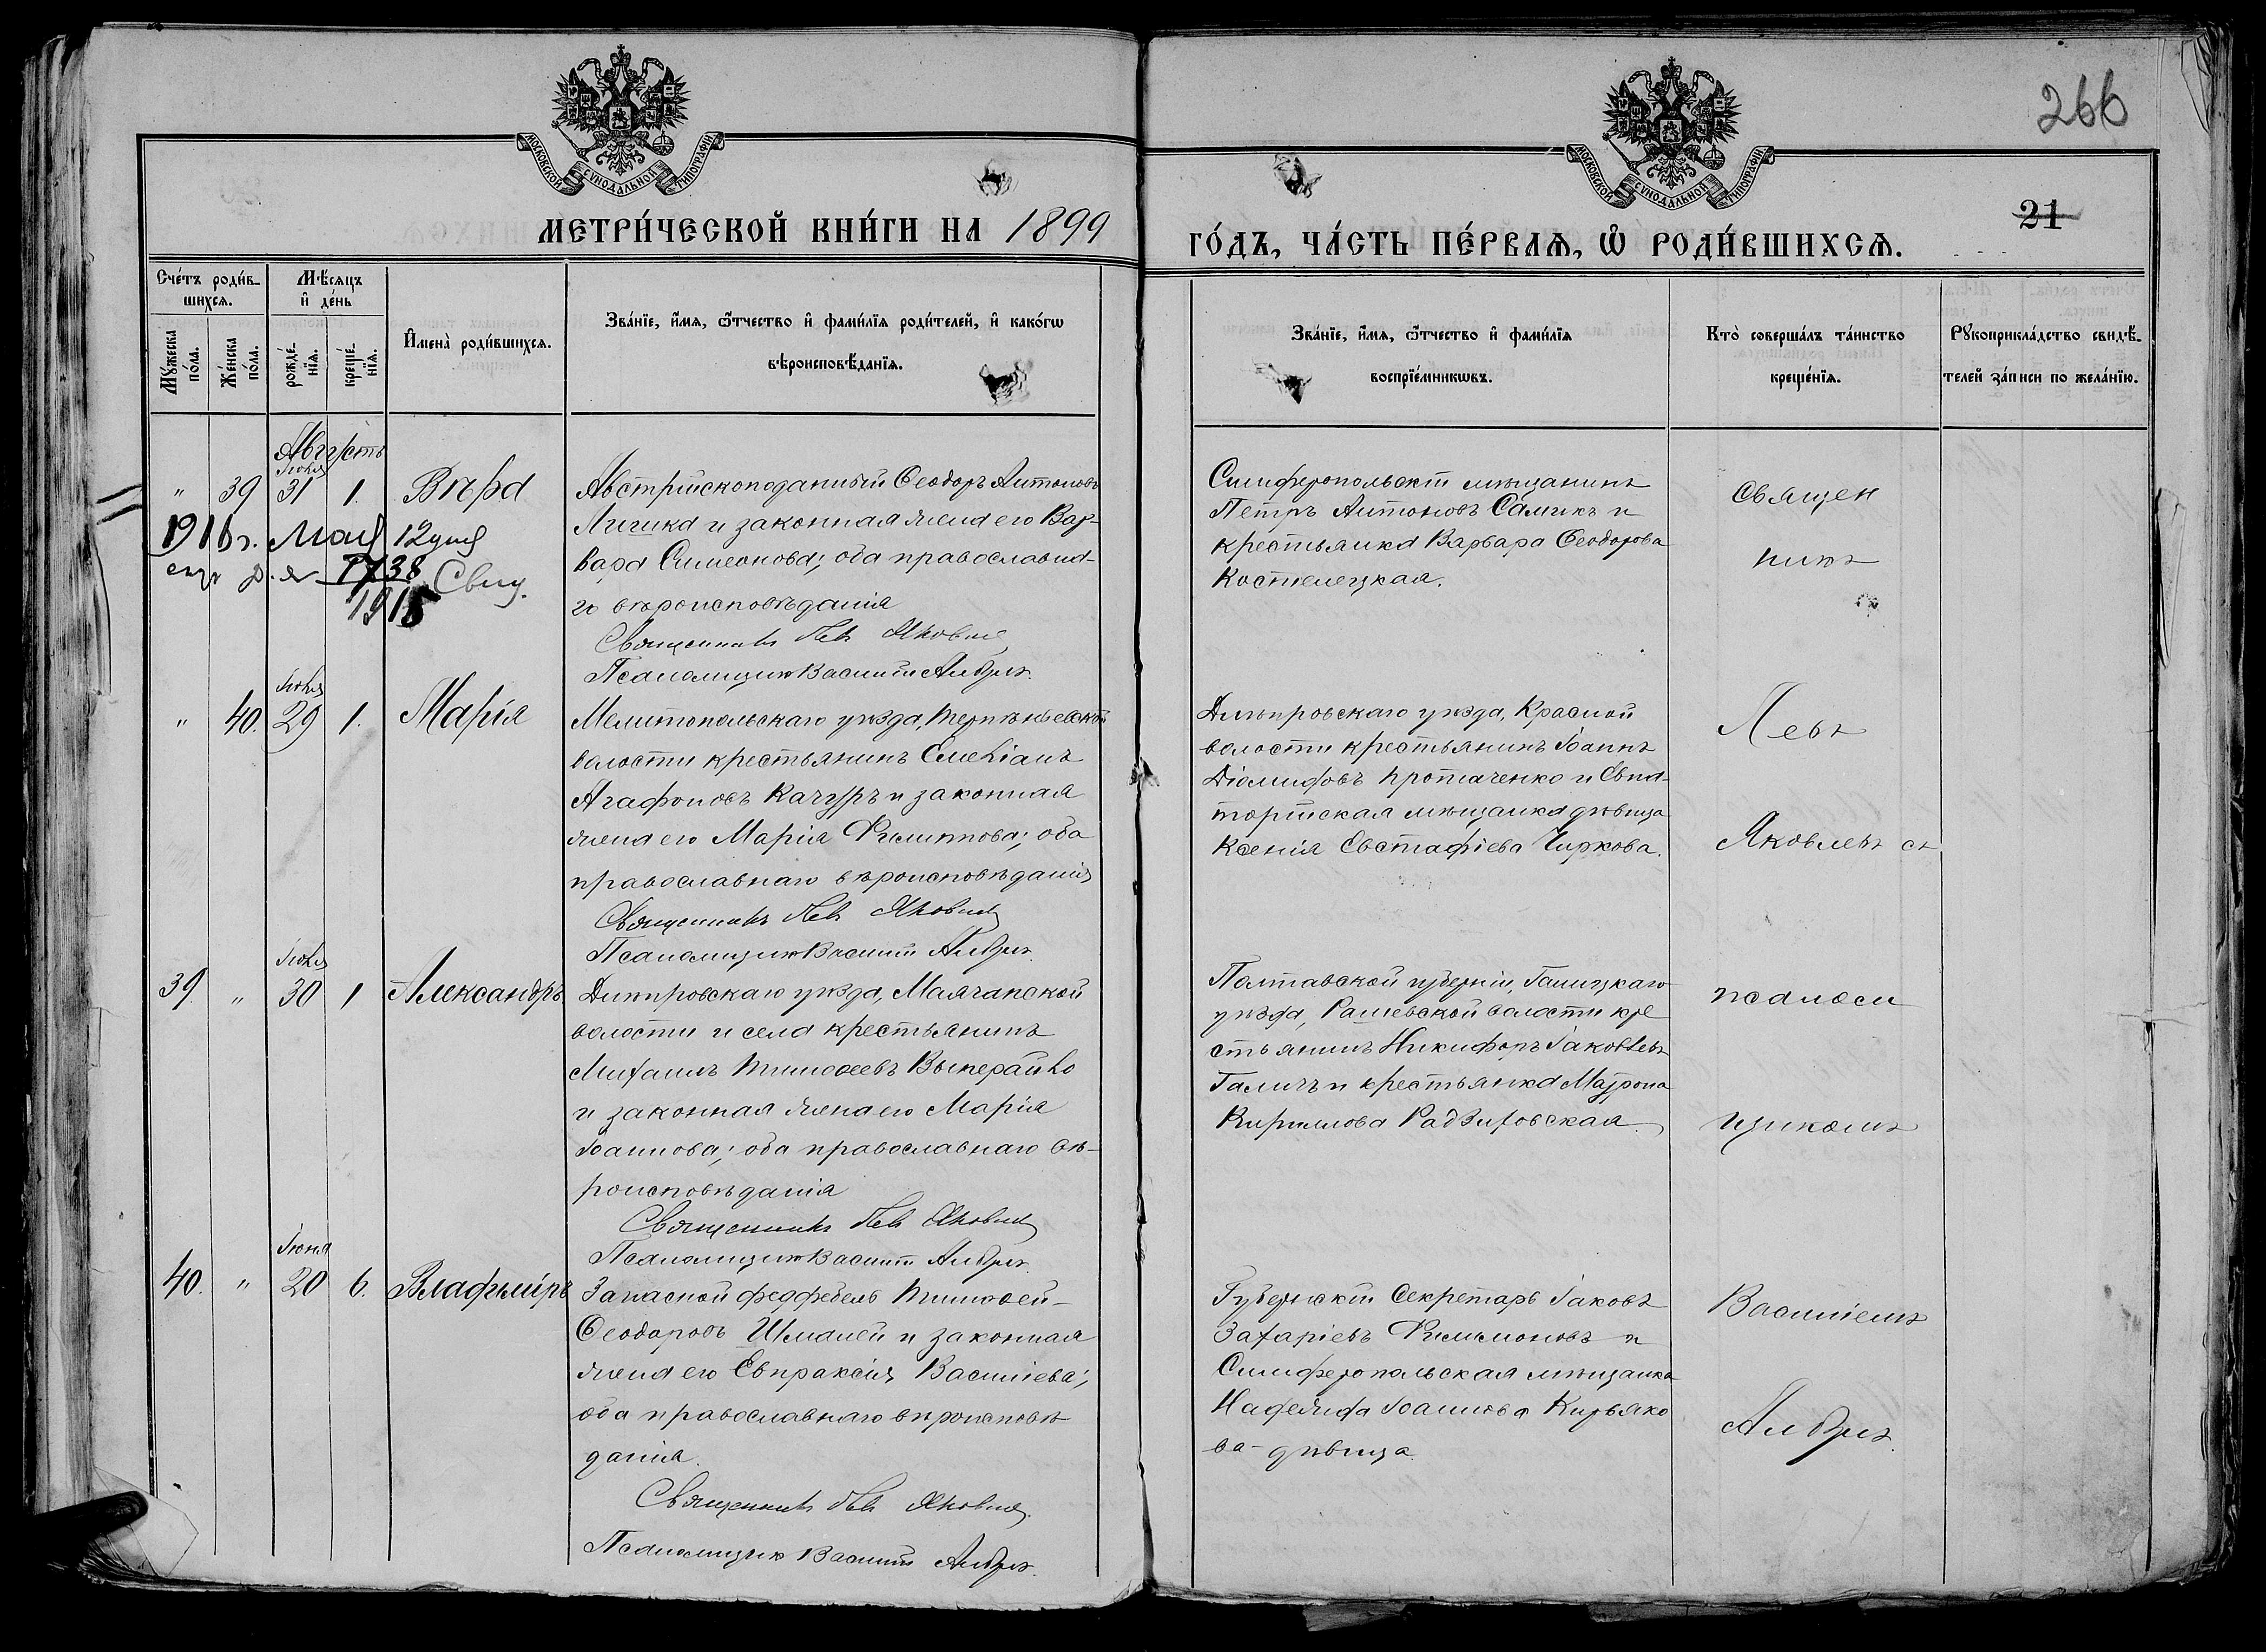 266
МОСКОВСКОЙ СѴНОДАЛЬНОЙ ТИПОГРАФІИ
МОСКОВСКОЙ СѴНОДАЛЬНОЙ ТИПОГРАФІИ
21
МЕТРИ́ЧЕСКОЙ КНИ́ГИ НА 1899
ГО́ДЪ, ЧА́СТЬ ПЕ́РВАѦ, Ѡ҆ РОДИ́ВШИХСѦ.
Сче́тъ роди́в-
шихсѧ.
Мꙋ́жеска
по́ла.
Же́нска
по́ла.
Мѣ́сѧцъ
и҆ де́нь
рожде́-
нїѧ.
креще́-
нїѧ.
И҆мена̀ роди́вшихсѧ.
Зва́нїе, и҆́мѧ, ѻ҆́тчество и҆ фами́лїѧ роди́телей, и҆ како́гѡ
вѣроисповѣ́данїѧ.
Зва́нїе, и҆́мѧ, ѻ҆́тчество и҆ фами́лїѧ
воспрїе́мникѡвъ.
Кто̀ соверша́лъ та́инство
креще́нїѧ.
Рꙋкоприкла́дство свидѣ́-
телей за́писи по жела́нїю.
Августъ
Іюля
" 39 31 1. Вѣра
Австрійскоподанный Ѳеодоръ Антоновъ
и законная жена его Вар-
вара Симеонова; оба православна-
го вѣроисповѣданія
Священникъ Левъ Яковлев
Псаломщикъ Василій Албул
1916 г. Мая 12 дня
1738
1915
Свящ.
Симферопольскій мѣщанинъ
Петръ Антоновъ Самикъ и
крестьянка Варвара Ѳеодорова
Костелецкая.
Священ
никъ
Іюля
" 40. 29 1. Марія
Мелитопольскаго уѣзда, Терпѣньевской
волости крестьянинъ
Агафоновъ Качуръ и законная
жена его Марія Филиппова; оба
православнаго вѣроисповѣданія
Священникъ Левъ Яковлев
Псаломщикъ Василій
Днѣпровскаго уѣзда, Красной
волости крестьянинъ Іоаннъ
Діомидовъ Протаченко и Евпа-
торійская мѣщанка дѣвица
Ксенія Евстафіева Чиркова.
Левъ
Яковлевъ съ
Іюля
39. " 30 1 Александръ
Днѣпровскаго уѣзда, Маячапской
волости и села крестьянинъ
Михаилъ Тимоѳеевъ
и законная жена его Марія
Іоаннова; оба православнаго вѣ-
роисповѣданія
Священникъ Левъ Яковлев
Псаломщикъ Василій
Полтавской губерніи, Гадяцкаго
уѣзда, Рашевской волости кре
стьянинъ Никифоръ Іаковлевъ
Галичъ и крестьянка Матрона
Кириллова Радзиховская.
псалом
щикомъ
Іюня
40. " 20 6. Владиміръ
Запасной фельдфебель Тимоѳей
Ѳеодоровъ Шмалей и законная
жена его Евпраксія Василіева;
оба православнаго вѣроисповѣ
данія.
Священникъ Левъ Яковлев
Псаломщикъ Василій
Губернскій Секретарь Іаковъ
Захаріевъ Филимоновъ и
Симферопольская мѣщанка
Надежда Іоаннова Кирьяко
ва - дѣвица.
Василіемъ